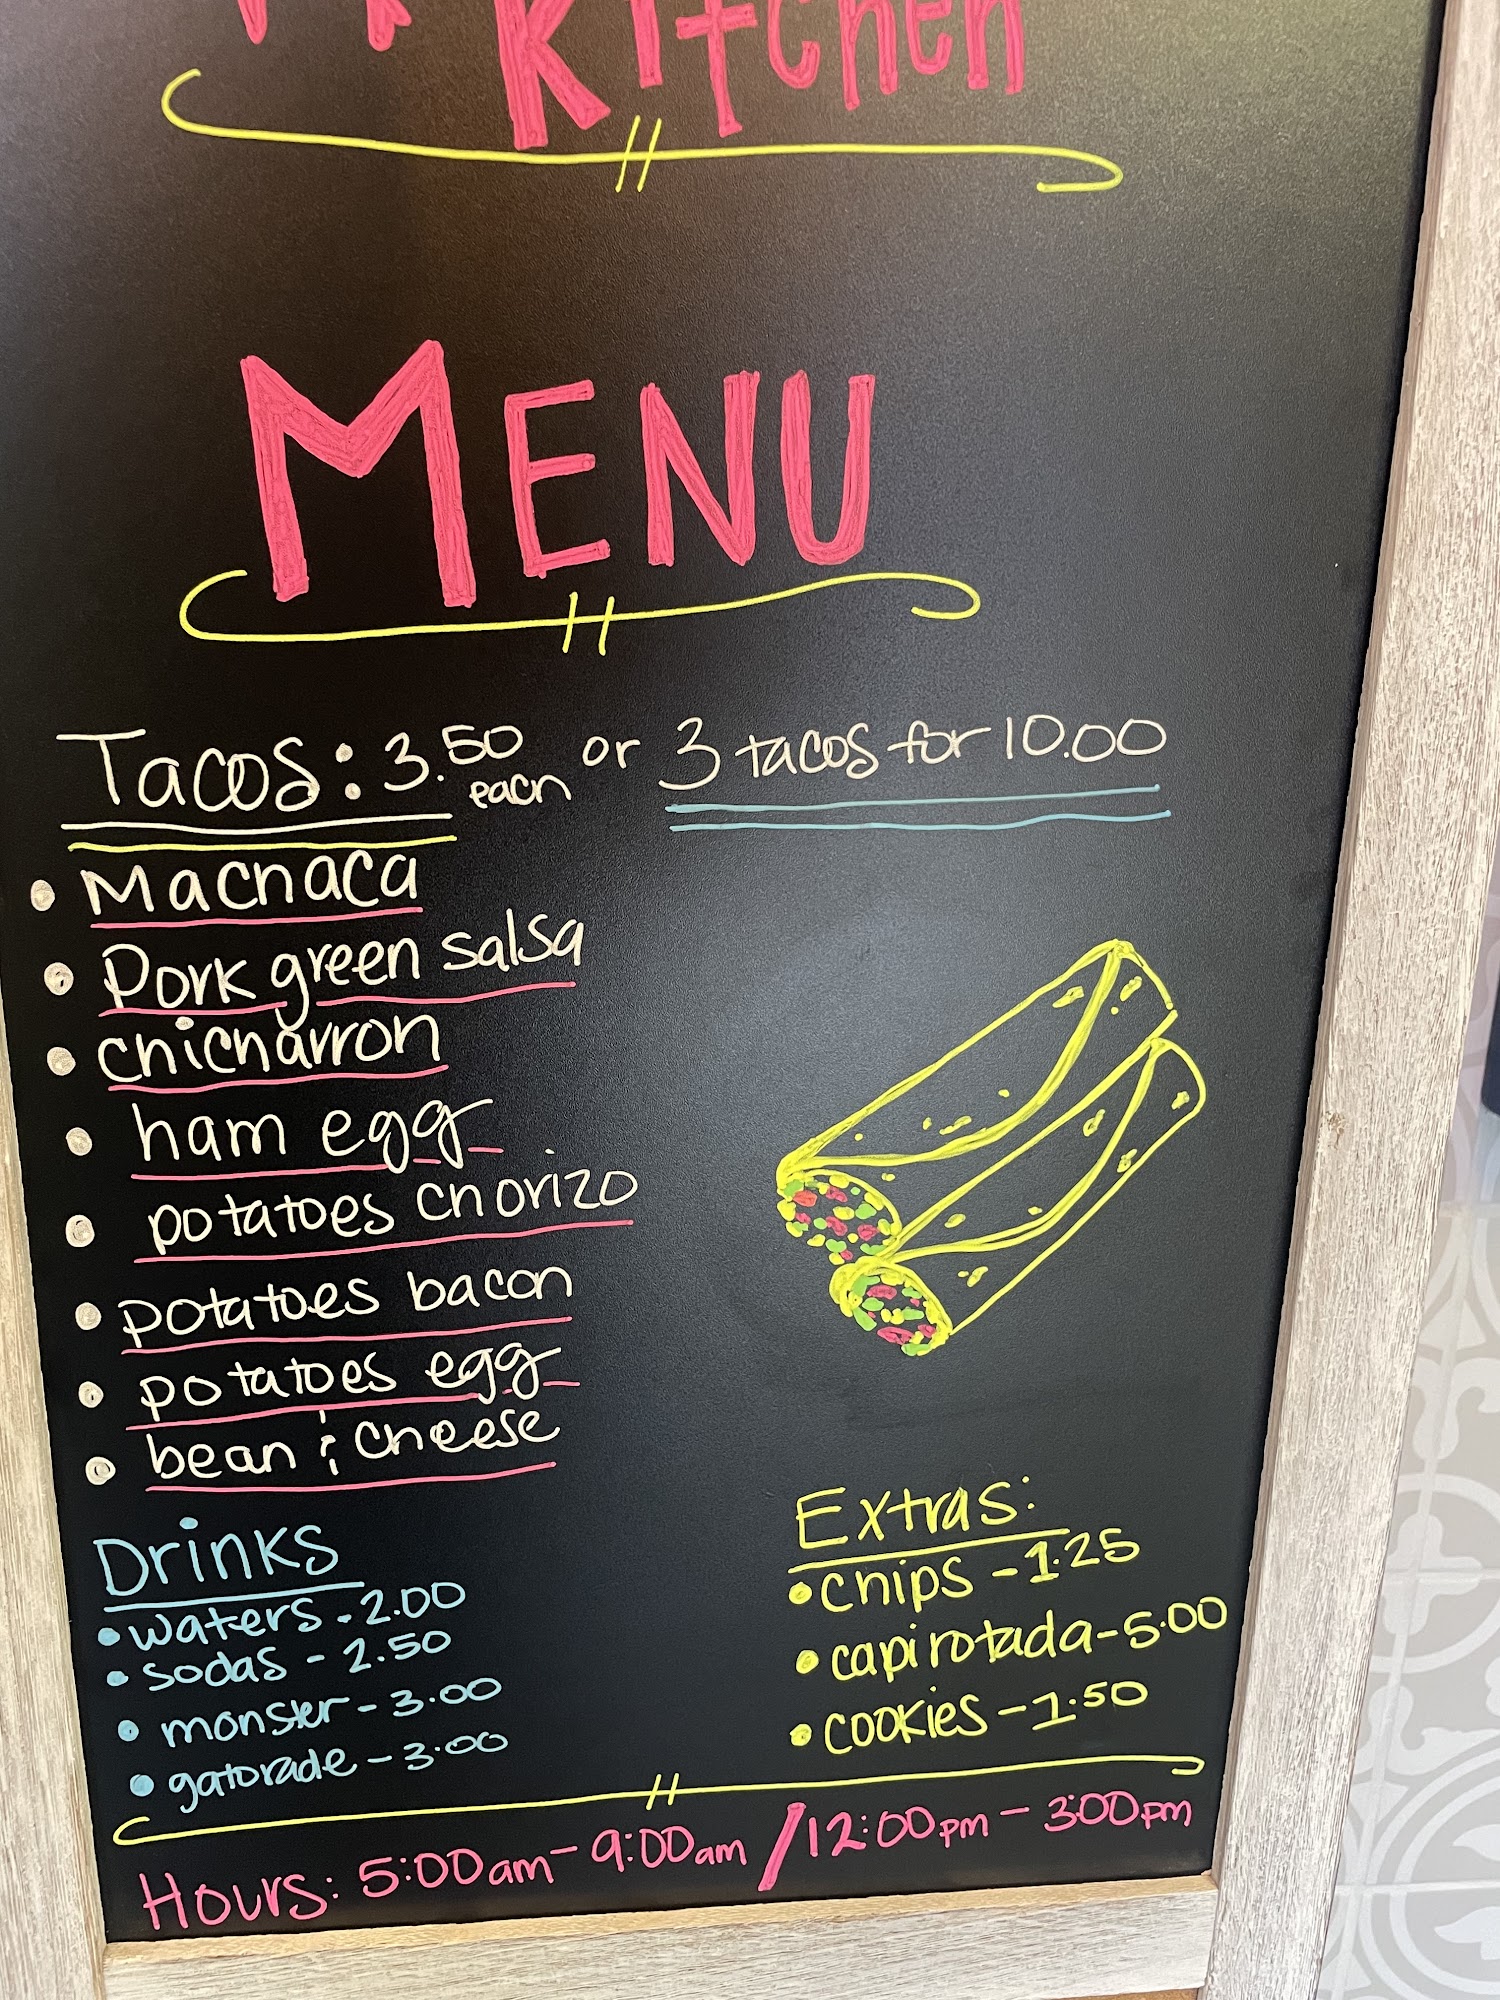 Kitchen
MENU
Tacos: 3.50 each or 3 tacos for 10.00
• Machaca
• Pork green salsa
• chicharron
• ham egg
• potatoes chorizo
• potatoes bacon
• potatoes egg
• bean & cheese
Drinks
• waters - 2.00
• sodas - 2.50
• monster - 3.00
• gatorade - 3.00
Extras:
• chips - 1.25
• capirotada - 5.00
• cookies - 1.50
Hours: 5:00am - 9:00am / 12:00pm - 3:00pm